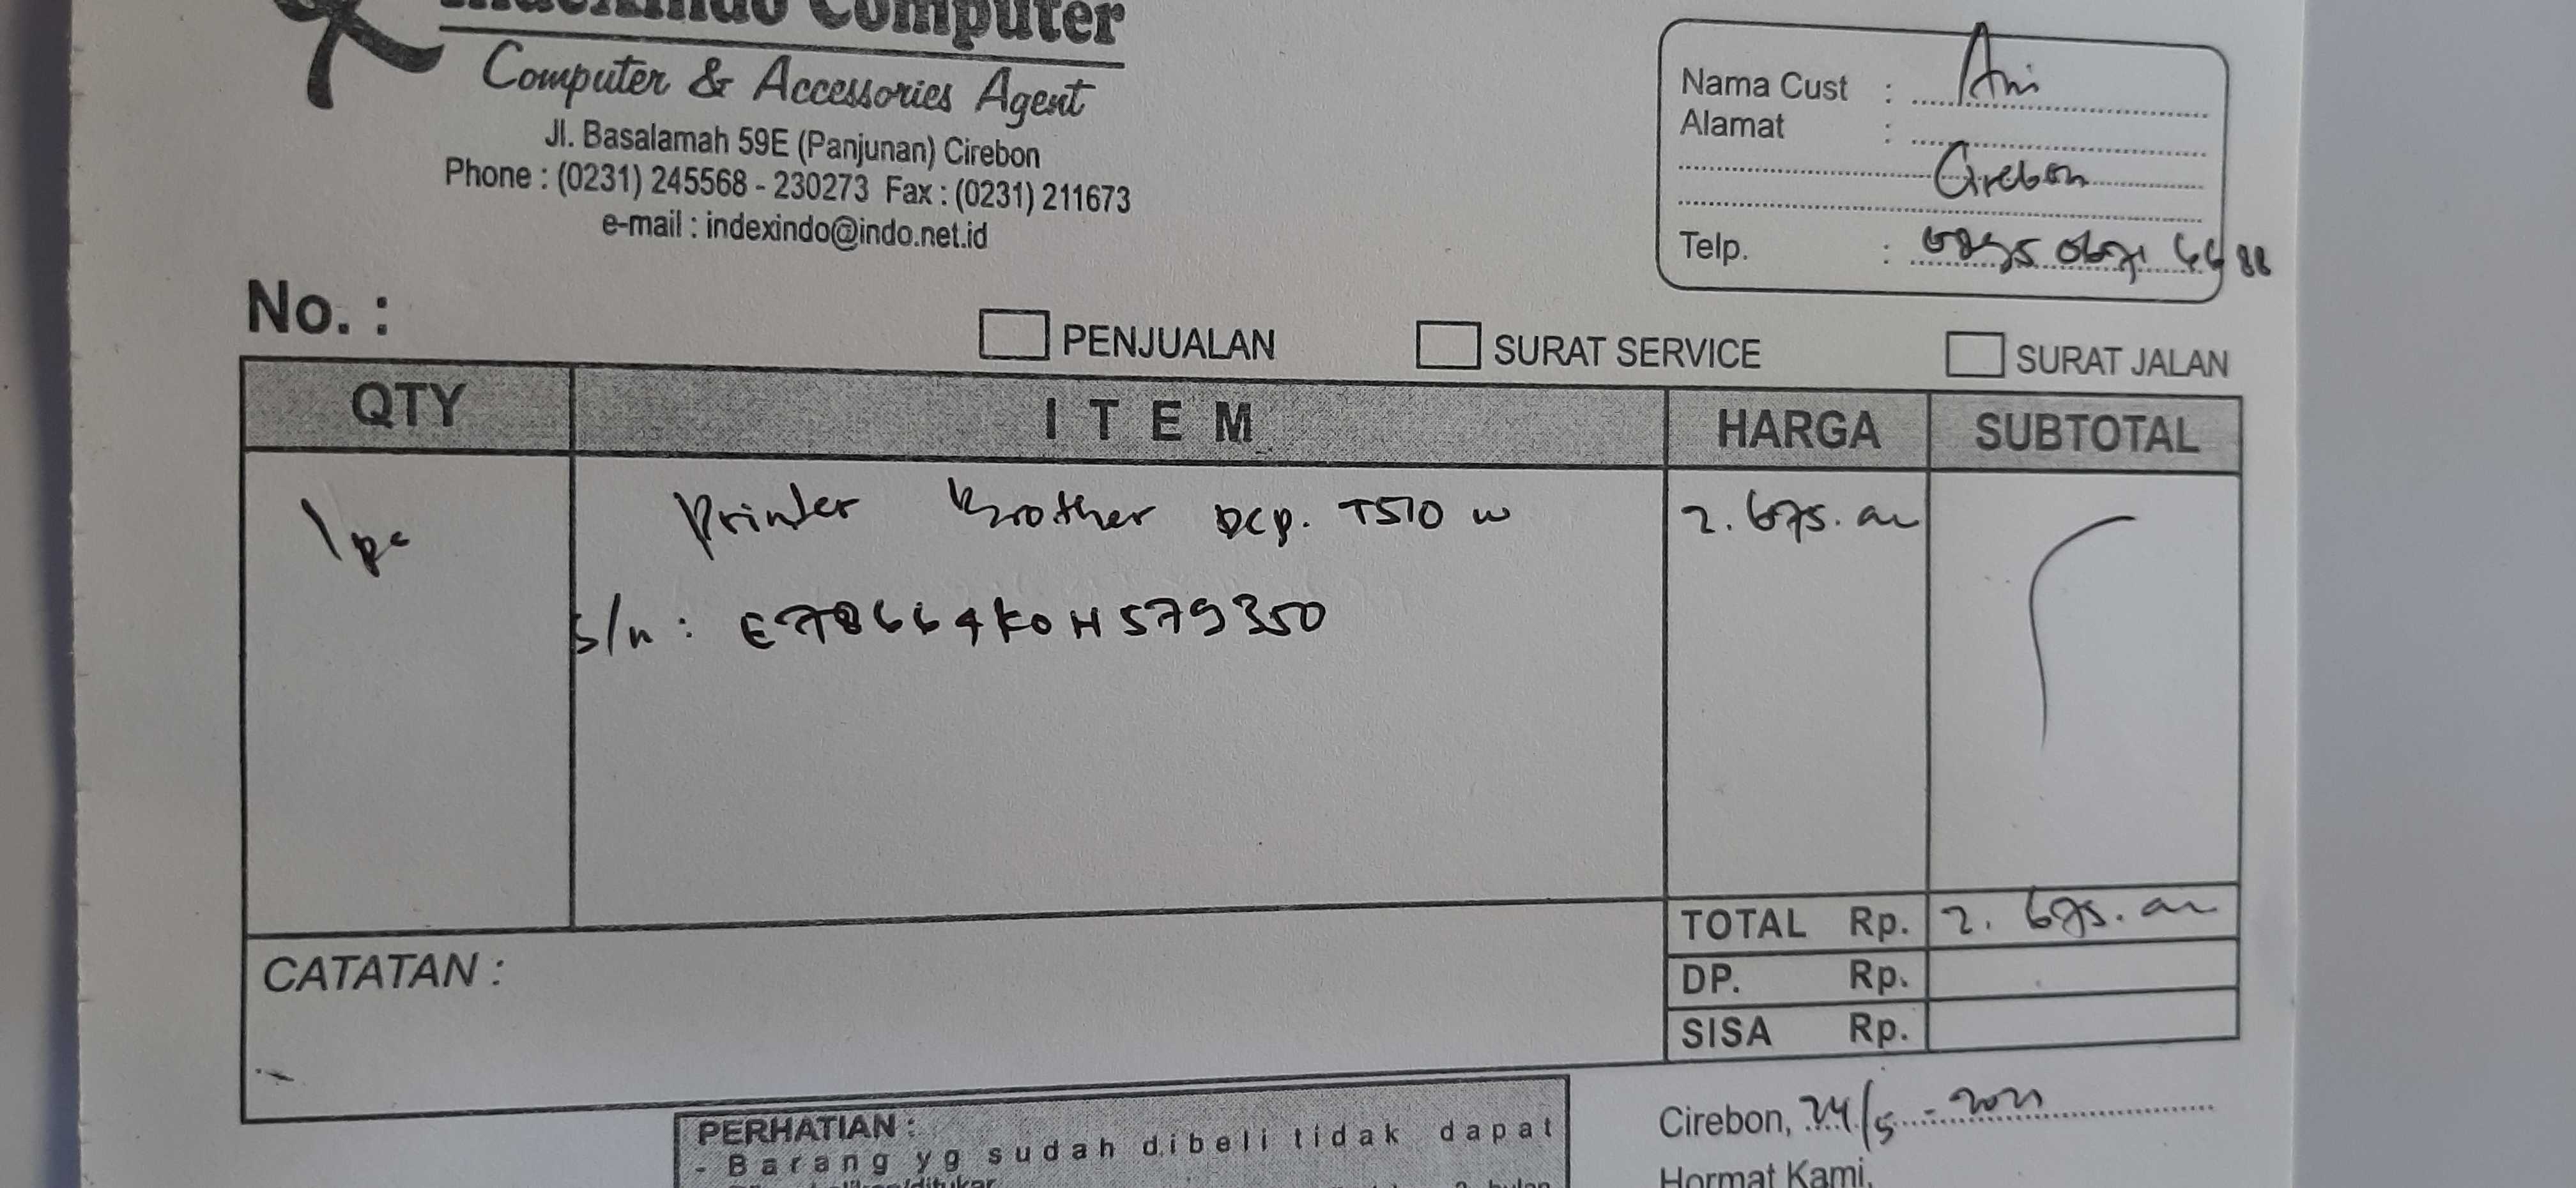 Indexindo Computer
Computer & Accessories Agent
Jl. Basalamah 59E (Panjunan) Cirebon
Phone : (0231) 245568 - 230273 Fax : (0231) 211673
e-mail : indexindo@indo.net.id
Nama Cust : Ani
Alamat :
Cirebon
Telp. :
No. :
PENJUALAN SURAT SERVICE SURAT JALAN
QTY ITEM HARGA SUBTOTAL
1 pc Printer Brother DCP. T510 w 2.675.
s/n : E78664K0H579350
TOTAL Rp. 2.675.
DP. Rp.
SISA Rp.
CATATAN :
PERHATIAN :
- Barang yg sudah dibeli tidak dapat
Cirebon, 24/5 - 2021
Hormat Kami,